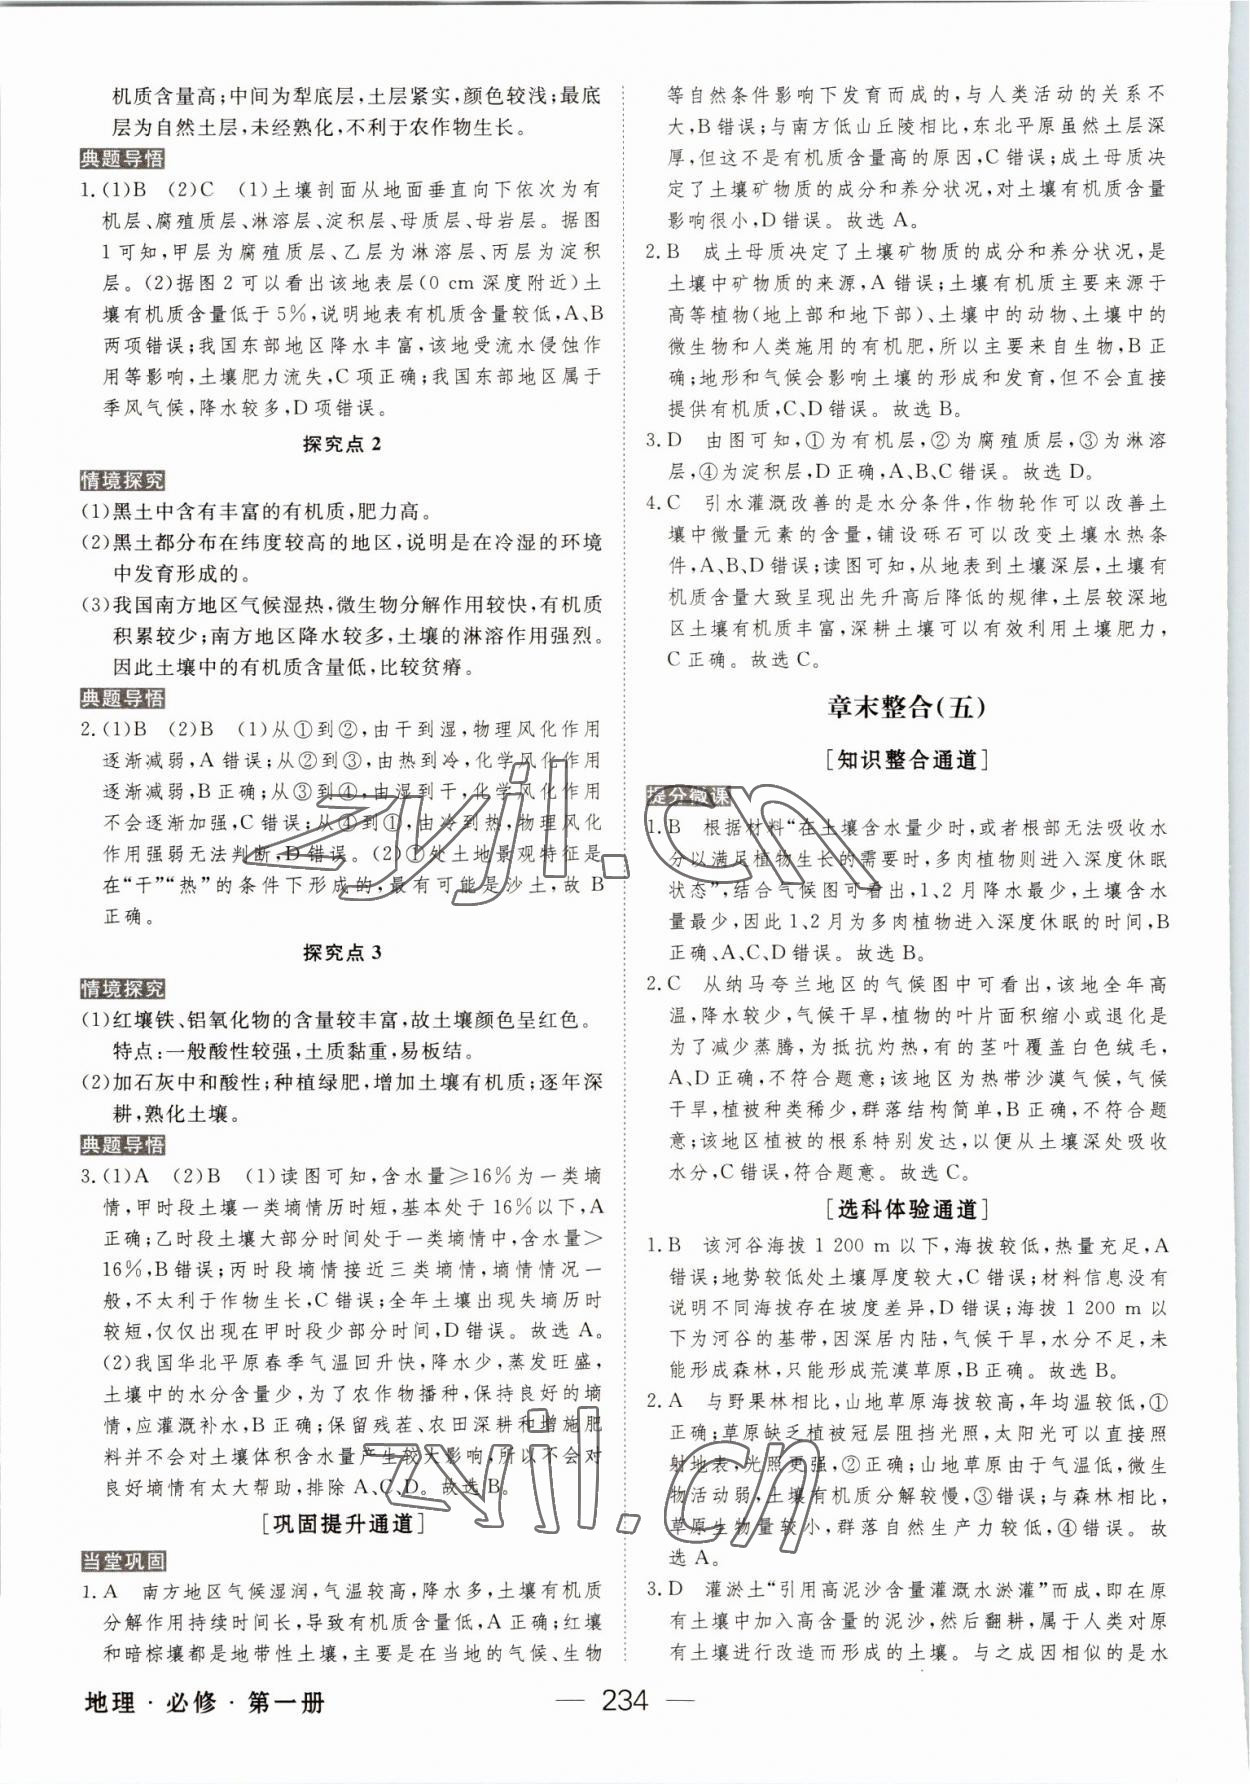 机质含量高;中间为犁底层,土层紧实,颜色较浅;最底
层为自然土层,未经熟化,不利于农作物生长。
典题导悟
1.(1)B (2)C (1)土壤剖面从地面垂直向下依次为有
机层、腐殖质层、淋溶层、淀积层、母质层、母岩层。据图
1可知,甲层为腐殖质层、乙层为淋溶层、丙层为淀积
层。(2)据图2可以看出该地表层(0 cm深度附近)土
壤有机质含量低于5%,说明地表有机质含量较低,A、B
两项错误;我国东部地区降水丰富,该地受流水侵蚀作
用等影响,土壤肥力流失,C项正确;我国东部地区属于
季风气候,降水较多,D项错误。
探究点2
情境探究
(1)黑土中含有丰富的有机质,肥力高。
(2)黑土都分布在纬度较高的地区,说明是在冷湿的环境
中发育形成的。
(3)我国南方地区气候湿热,微生物分解作用较快,有机质
积累较少;南方地区降水较多,土壤的淋溶作用强烈。
因此土壤中的有机质含量低,比较贫瘠。
典题导悟
2.(1)B (2)B (1)从①到②,由干到湿,物理风化作用
逐渐减弱,A错误;从②到③,由热到冷,化学风化作用
逐渐减弱,B正确;从③到④,由湿到干,化学风化作用
不会逐渐加强,C错误;从④到①,由冷到热,物理风化
作用强弱无法判断,D错误。(2)①处土地景观特征是
在“干”“热”的条件下形成的,最有可能是沙土,故B
正确。
探究点3
情境探究
(1)红壤铁、铝氧化物的含量较丰富,故土壤颜色呈红色。
特点:一般酸性较强,土质黏重,易板结。
(2)加石灰中和酸性;种植绿肥,增加土壤有机质;逐年深
耕,熟化土壤。
典题导悟
3.(1)A (2)B (1)读图可知,含水量≥16%为一类墒
情,甲时段土壤一类墒情历时短,基本处于16%以下,A
正确;乙时段土壤大部分时间处于一类墒情,含水量>
16%,B错误;丙时段墒情接近三类墒情,墒情情况一
般,不太利于作物生长,C错误;全年土壤出现失墒历时
较短,仅仅出现在甲时段少部分时间,D错误。故选A。
(2)我国华北平原春季气温回升快,降水少,蒸发旺盛,
土壤中的水分含量少,为了农作物播种,保持良好的墒
情,应灌溉补水,B正确;保留残茬、农田深耕和增施肥
料并不会对土壤体积含水量产生较大影响,所以不会对
良好墒情有太大帮助,排除A、C、D。故选B。
[巩固提升通道]
当堂巩固
1.A 南方地区气候湿润,气温较高,降水多,土壤有机质
分解作用持续时间长,导致有机质含量低,A正确;红壤
和暗棕壤都是地带性土壤,主要是在当地的气候、生物
等自然条件影响下发育而成的,与人类活动的关系不
大,B错误;与南方低山丘陵相比,东北平原虽然土层深
厚,但这不是有机质含量高的原因,C错误;成土母质决
定了土壤矿物质的成分和养分状况,对土壤有机质含量
影响很小,D错误。故选A。
2.B 成土母质决定了土壤矿物质的成分和养分状况,是
土壤中矿物质的来源,A错误;土壤有机质主要来源于
高等植物(地上部和地下部)、土壤中的动物、土壤中的
微生物和人类施用的有机肥,所以主要来自生物,B正
确;地形和气候会影响土壤的形成和发育,但不会直接
提供有机质,C、D错误。故选B。
3.D 由图可知,①为有机层,②为腐殖质层,③为淋溶
层,④为淀积层,D正确,A、B、C错误。故选D。
4.C 引水灌溉改善的是水分条件,作物轮作可以改善土
壤中微量元素的含量,铺设砾石可以改变土壤水热条
件,A、B、D错误;读图可知,从地表到土壤深层,土壤有
机质含量大致呈现出先升高后降低的规律,土层较深地
区土壤有机质丰富,深耕土壤可以有效利用土壤肥力,
C正确。故选C。
章末整合(五)
[知识整合通道]
提分微课
1.B 根据材料“在土壤含水量少时,或者根部无法吸收水
分以满足植物生长的需要时,多肉植物则进入深度休眠
状态”,结合气候图可看出,1、2月降水最少,土壤含水
量最少,因此1、2月为多肉植物进入深度休眠的时间,B
正确、A、C、D错误。故选B。
2.C 从纳马夸兰地区的气候图中可看出,该地全年高
温,降水较少,气候干旱,植物的叶片面积缩小或退化是
为了减少蒸腾,为抵抗灼热,有的茎叶覆盖白色绒毛,
A、D正确,不符合题意;该地区为热带沙漠气候,气候
干旱,植被种类稀少,群落结构简单,B正确,不符合题
意;该地区植被的根系特别发达,以便从土壤深处吸收
水分,C错误,符合题意。故选C。
[选科体验通道]
1.B 该河谷海拔1 200 m以下,海拔较低,热量充足,A
错误;地势较低处土壤厚度较大,C错误;材料信息没有
说明不同海拔存在坡度差异,D错误;海拔1 200 m以
下为河谷的基带,因深居内陆,气候干旱,水分不足,未
能形成森林,只能形成荒漠草原,B正确。故选B。
2.A 与野果林相比,山地草原海拔较高,年均温较低,①
正确;草原缺乏植被冠层阻挡光照,太阳光可以直接照
射地表,光照更强,②正确;山地草原由于气温低,微生
物活动弱,土壤有机质分解较慢,③错误;与森林相比,
草原生物量较小,群落自然生产力较低,④错误。故
选A。
3.D 灌淤土“引用高泥沙含量灌溉水淤灌”而成,即在原
有土壤中加入高含量的泥沙,然后翻耕,属于人类对原
有土壤进行改造而形成的土壤。与之成因相似的是水
地理·必修·第一册
— 234 —
zyjl.cn
zyjl.cn